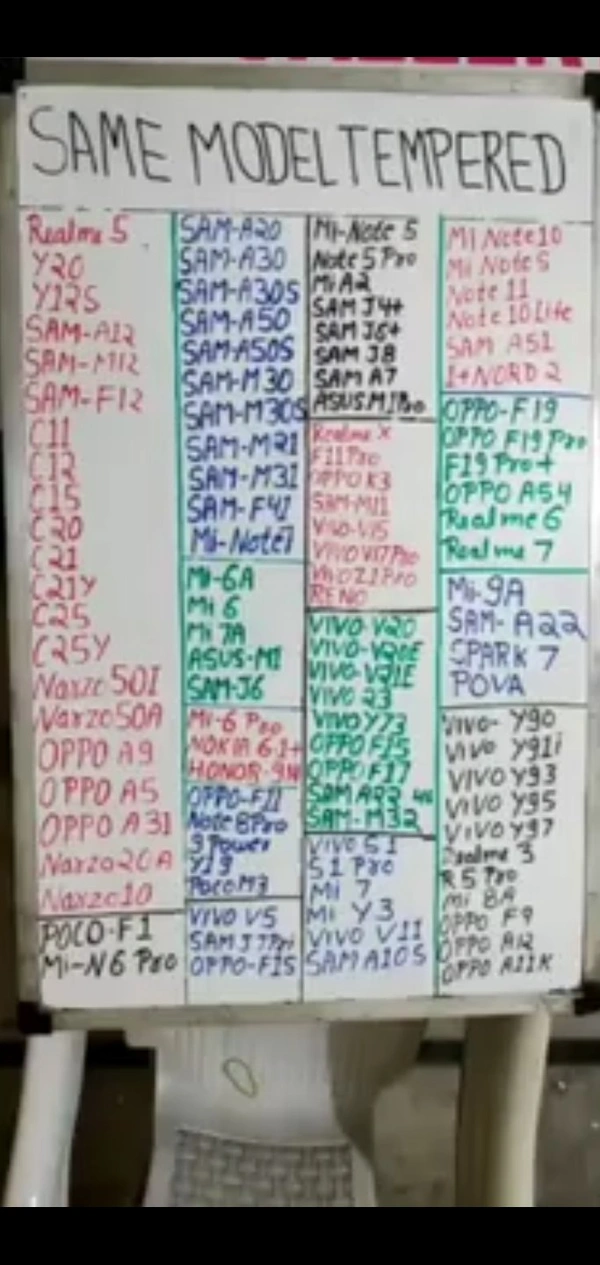 SAME MODEL TEMPERED
Realme 5
Y20
Y12S
SAM-A12
SAM-M12
SAM-F12
C11
C12
C15
C20
C21
C21Y
C25
C25Y
Narzo 50I
Narzo50A
OPPO A9
OPPO A5
OPPO A31
Narzo20A
Narzo10
POCO-F1
Mi-N6 Pro
SAM-A20
SAM-A30
SAM-A30S
SAM-A50
SAM-A50S
SAM-M30
SAM-M30S
SAM-M21
SAM-M31
SAM-F41
Mi-Note7
Mi-6A
Mi 6
Mi 7A
ASUS-M1
SAM-J6
Mi-6 Pro
NOKIA 6.1+
HONOR-9N
OPPO-F11
Note 8Pro
9 Power
Y19
Poco M3
VIVO V5
SAM J7Pri
OPPO-F1S
Mi-Note 5
Note 5 Pro
Mi A2
SAM J4+
SAM J6+
SAM J8
SAM A7
ASUS M1Pro
Realme X
F11 Pro
OPPO K3
SAM-M11
Vivo-V15
VIVO V17Pro
VIVO Z1Pro
RENO
VIVO V20
VIVO-V20E
VIVO-V21E
VIVO 23
VIVO Y73
OPPO F15
OPPO F17
SAM 4G
SAM-M32
VIVO S1
S1 Pro
Mi 7
Mi Y3
VIVO V11
SAM A10S
Mi Note10
Mi Note 5
Note 11
Note 10 Lite
SAM A51
1+NORD 2
OPPO-F19
OPPO F19 Pro
F19 Pro+
OPPO A54
Realme 6
Realme 7
Mi-9A
SAM-A22
SPARK 7
POVA
Vivo- Y90
Vivo Y91i
VIVO Y93
VIVO Y95
VIVO Y97
Realme 3
R5 Pro
Mi 8A
OPPO F9
OPPO A12
OPPO A11K